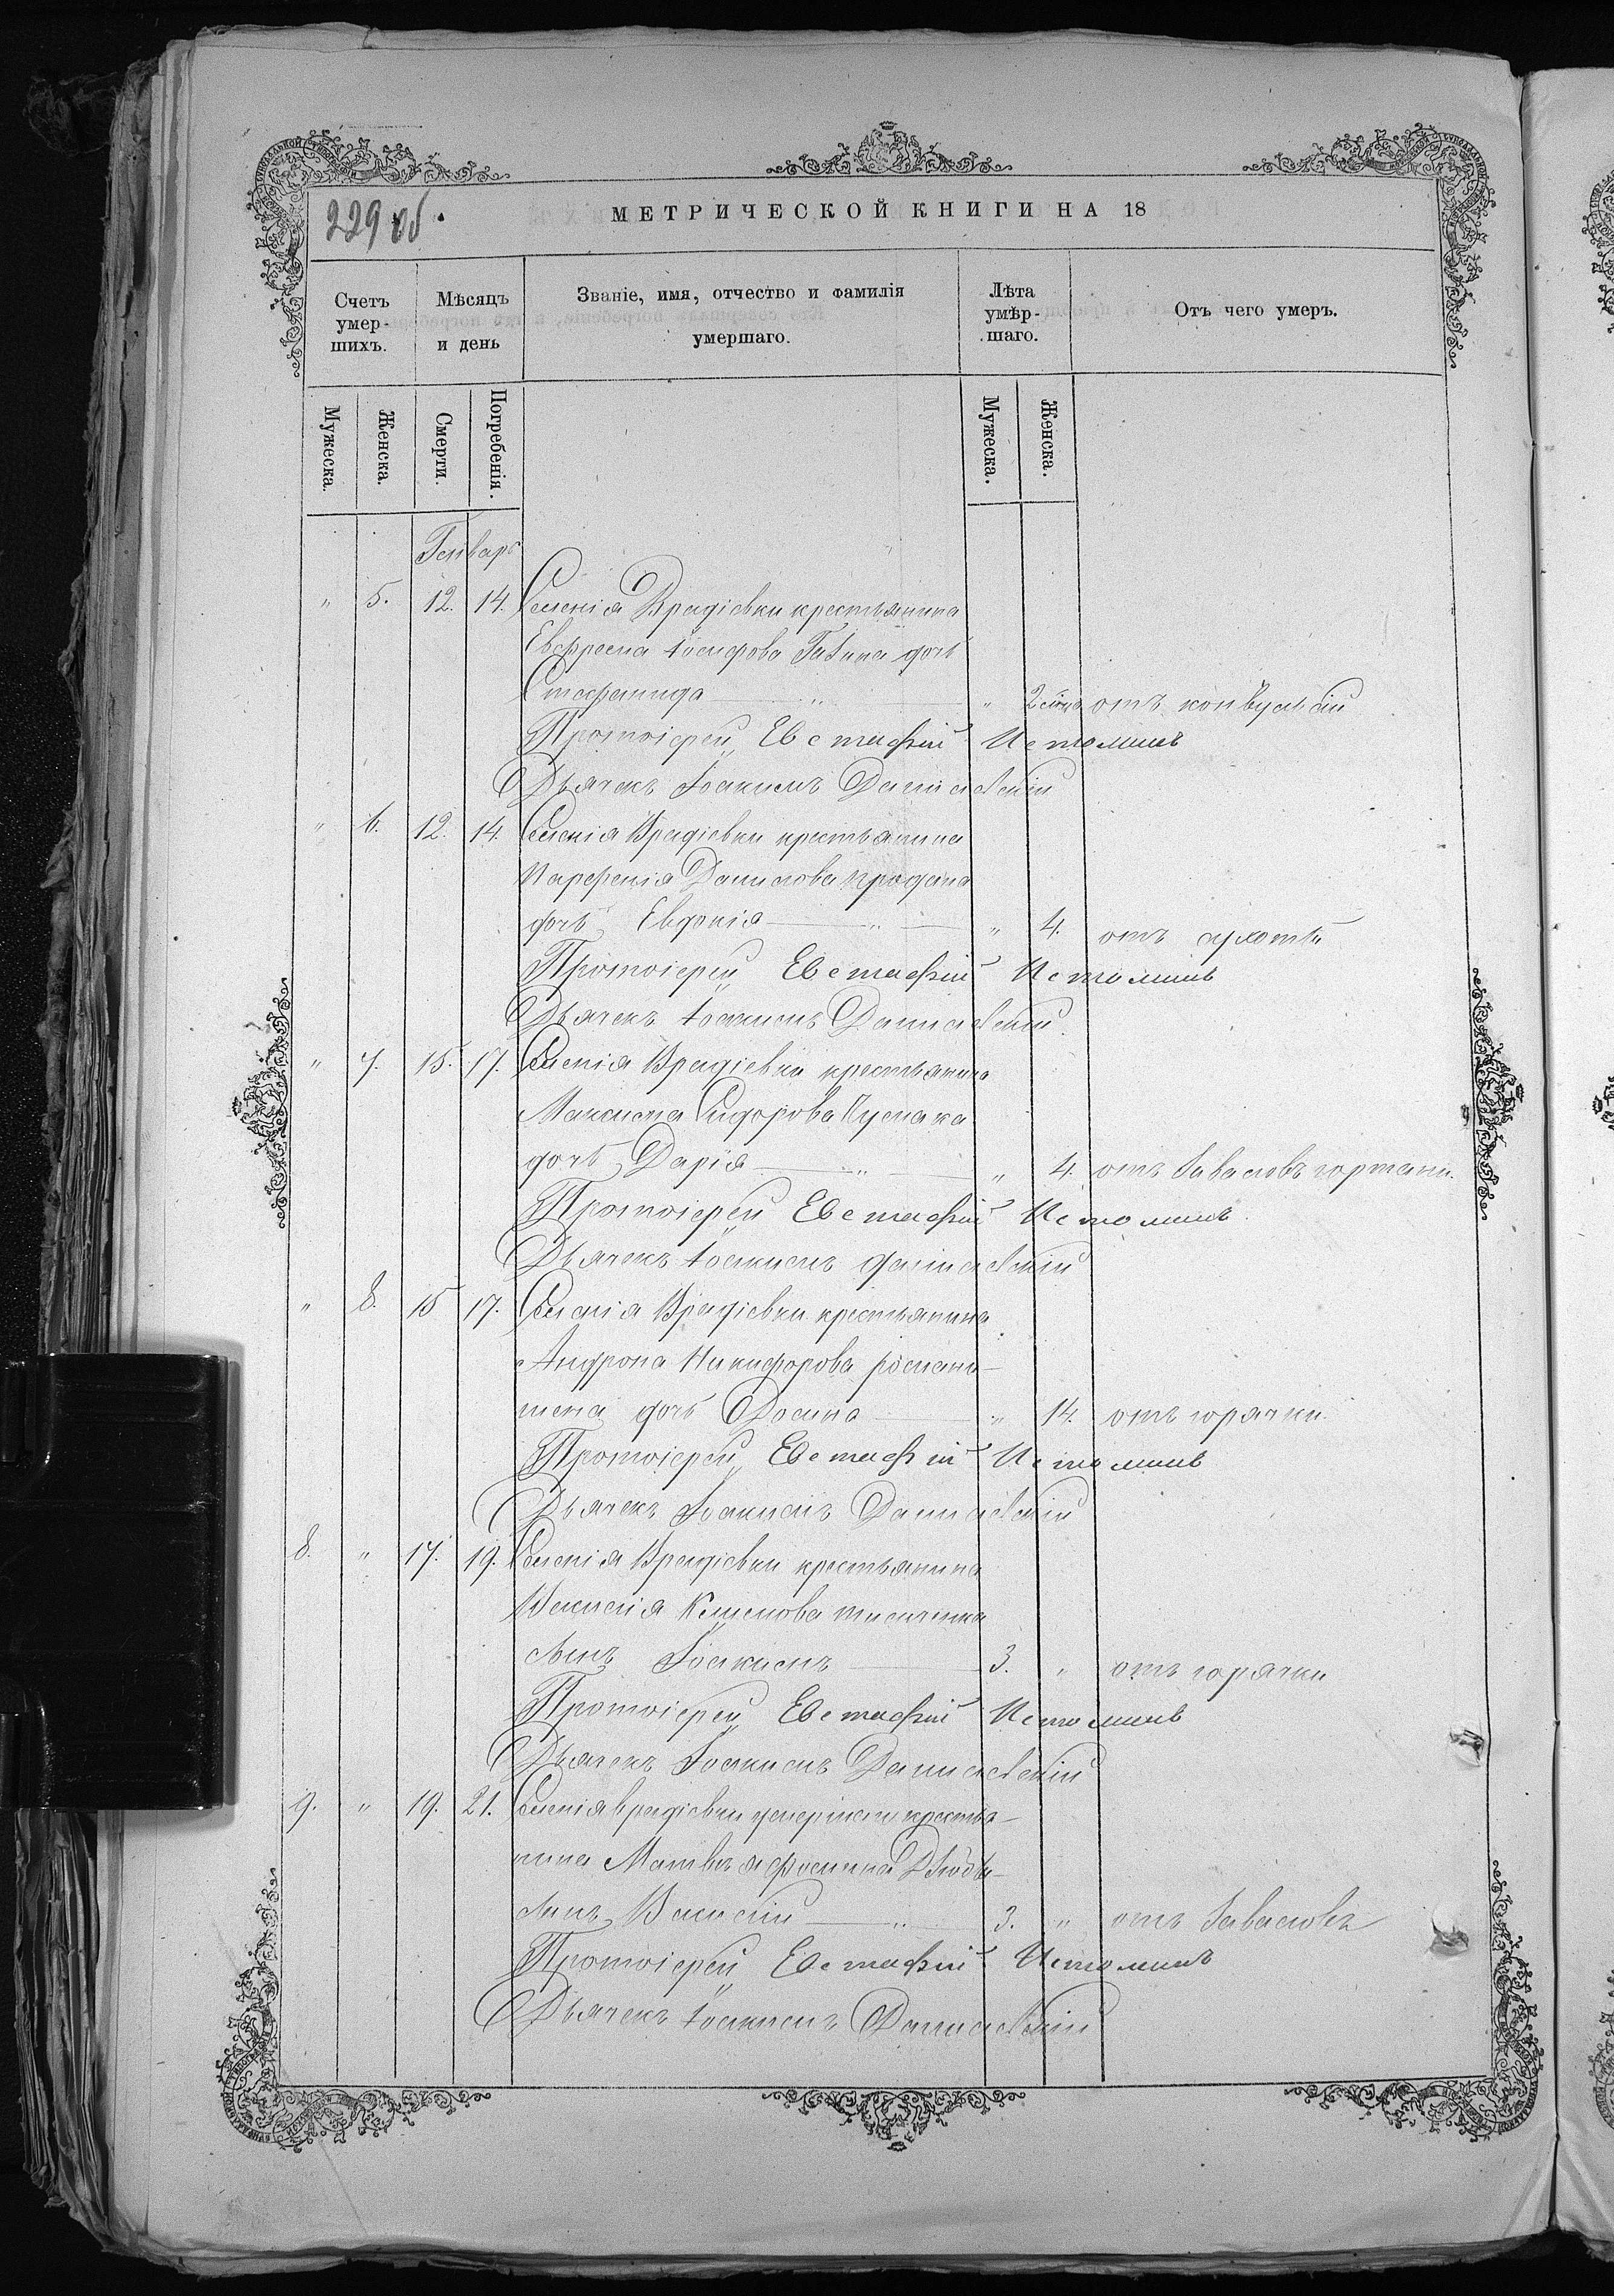 229 об.
МЕТРИЧЕСКОЙ КНИГИ НА 18
Счетъ умер-шихъ.
Мѣсяцъ и день
Званіе, имя, отчество и фамилія умершаго.
Лѣта умѣр-шаго.
Отъ чего умеръ.
Мужеска.
Женска.
Смерти.
Погребенія.
Мужеска.
Женска.
Генварь
" 5. 12. 14. Селенія Врадіевки крестьянина
Евфросима Іосифова дочь
Стефанида " " отъ конвульсіи
Протоіерей Евстафій Истоминъ
Дьячекъ Іоакимъ Данилевскій
" 6. 12. 14. Селенія Врадіевки крестьянина
Парфенія Данилова Продана
дочь Евдокія " " 4. отъ
Протоіерей Евстафій Истоминъ
Дьячекъ Іоакимъ Данилевскій
" 7. 15. 17. Селенія Врадіевки крестьянина
Максима Сидорова Чумака
дочь Дарія " " 4. отъ заваловъ гортани.
Протоіерей Евстафій Истоминъ
Дьячекъ Іоакимъ Данилевскій
" 8. 15 17. Селенія Врадіевки крестьянина
Андрона Никифорова
дочь Домна " 14. отъ горячки
Протоіерей Евстафій Истоминъ
Дьячекъ Іоакимъ Данилевскій
8. " 17. 19. Селенія Врадіевки крестьянина
Климова
сынъ Іоакимъ 3. " отъ горячки
Протоіерей Евстафій Истоминъ
Дьячекъ Іоакимъ Данилевскій
9. " 19. 21. Селенія Врадіевки умершаго крестья-
нина Матвѣя Фомина
сынъ Василій " 3. " отъ заваловъ
Протоіерей Евстафій Истоминъ
Дьячекъ Іоакимъ Данилевскій